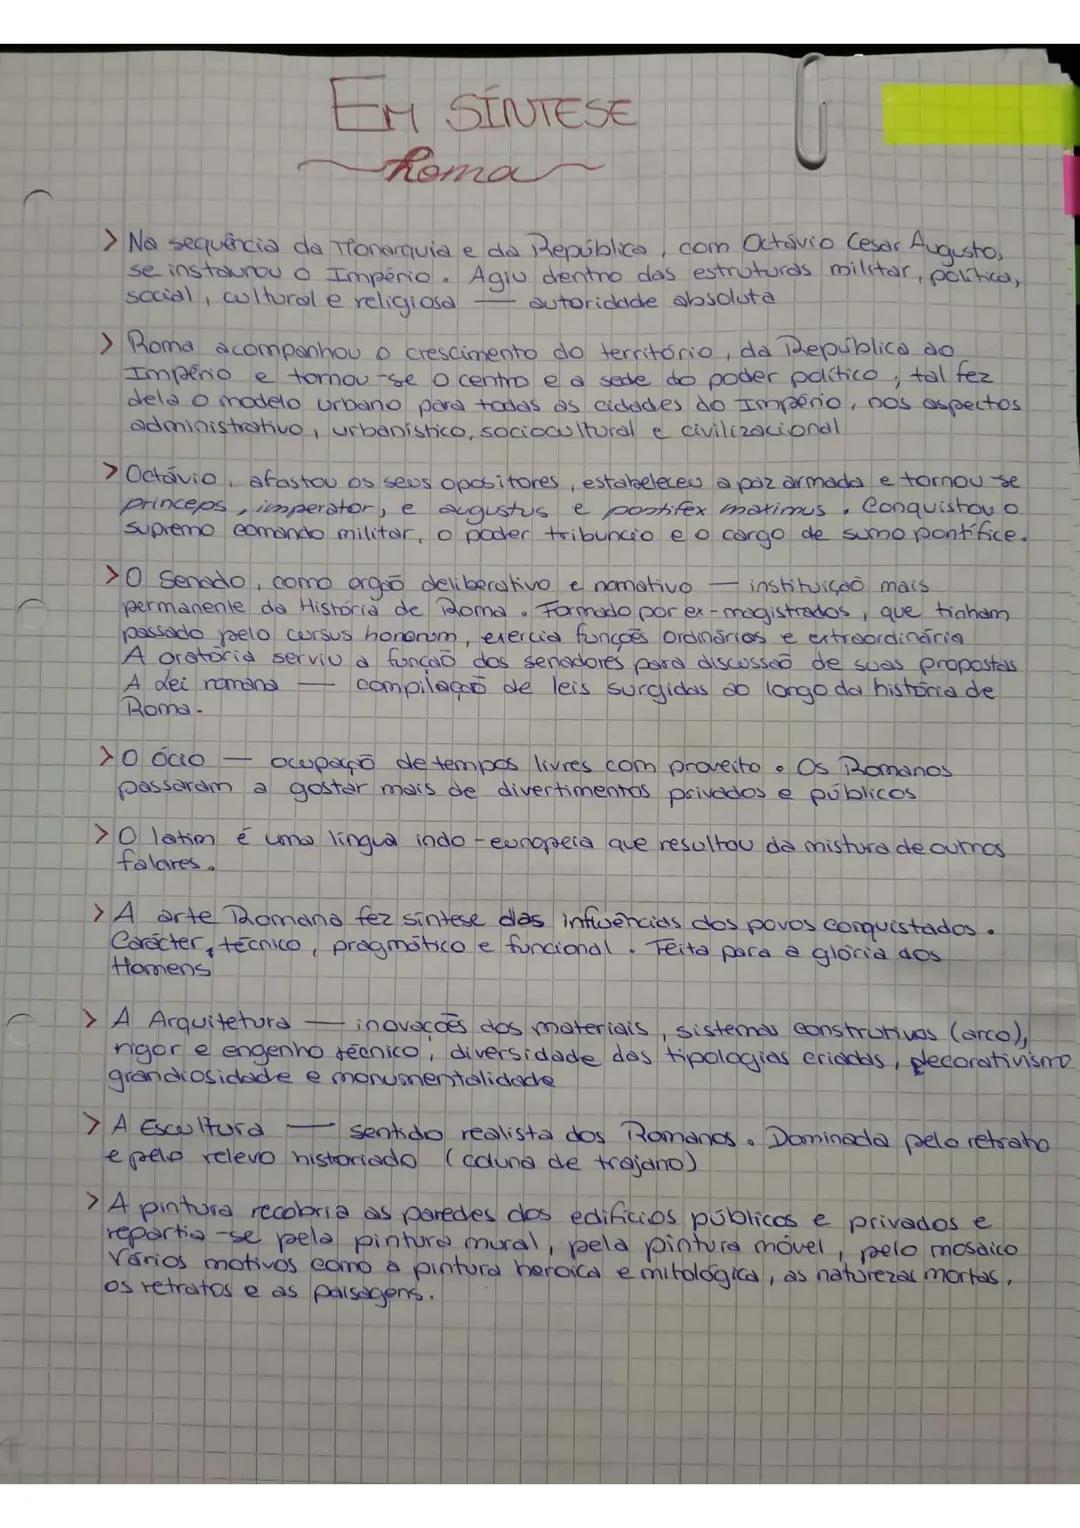 EM SÍNTESE
Roma
> Na sequência da Monarquia e da República, com Octávio Cesar Augusto,
se instaurou o Império. Agiu dentro das estruturas militar, política,
social, cultural e religiosa — autoridade absoluta
> Roma acompanhou o crescimento do território, da República ao
Império e tornou-se o centro e a sede do poder político; tal fez
dela o modelo urbano para todas as cidades do Império, nos aspectos
administrativo, urbanístico, sociocultural e civilizacional
> Octávio, afastou os seus opositores, estabeleceu a paz armada e tornou-se
princeps, imperator, e augustus e pontifex maximus. Conquistou o
supremo comando militar, o poder tribuncio e o cargo de sumo pontífice.
> O Senado, como orgaõ deliberativo e nomativo — instituiçaõ mais
permanente da História de Roma. Formado por ex-magistrados, que tinham
passado pelo cursus honorum, exercia funçoẽs ordinárias e extraordinária
A oratória serviu a funçaõ dos senadores para discussaõ de suas propostas
A Lei romana — compilaçaõ de leis surgidas ao longo da história de
Roma.
> O ócio — ocupaçõ de tempos livres com proveito. Os Romanos
passaram a gostar mais de divertimentos privados e públicos
> O latim é uma língua indo-europeia que resultou da mistura de outros
falares.
> A arte Romana fez síntese das influências dos povos conquistados.
Carácter, técnico, pragmático e funcional. Feita para a glória dos
Homens
> A Arquitetura — inovaçoẽs dos materiais, sistemas construtivos (arco),
rigor e engenho técnico, diversidade das tipologias criadas, decorativismo
grandiosidade e monumentalidade
> A Escultura — sentido realista dos Romanos. Dominada pelo retrato
e pelo relevo historiado (coluna de trajano)
> A pintura recobria as paredes dos edifícios públicos e privados e
repartia-se pela pintura mural, pela pintura móvel, pelo mosaico
Vários motivos como a pintura heroica e mitológica, as naturezas mortas,
os retratos e as paisagens.